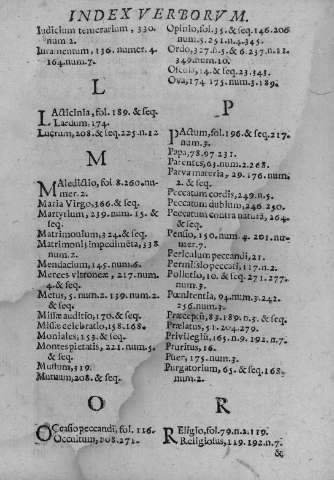 INDEX VERBORVM.
Iudicium temerarium, 330.
num 2.
Iuramentum, 136. numer. 4.
164. num.7.
L
LActicinia, fol. 189. & seq.
Lædum. 174.
Lucrum, 208. & seq. 225. n.12
M
MAledictio, fol. 8.260. nu-
mer. 2.
Maria Virgo, 366. & seq.
Martyrium, 239. num. 15. &
seq.
Matrimonium, 324. & seq.
Matrimonij impedimẽta, 338
num. 2.
Mendacium, 145. num. 6.
217. num.
4. & seq.
Metus, 5. num. 2. 139. num. 2.
& seq.
Missæ auditio, 170. & seq.
Missæ celebratio, 158. 168.
Moniales, 153. & seq.
Montespietatis, 221. num. 5.
& seq.
Mustum, 319.
Mutuum, 208. & seq.
O
OCcasio peccandi, fol. 116.
Occultum, 208. 271.
Opinio, fol. 35. & seq. 146. 206
num. 5. 251. n. 4. 345.
Ordo, 327. n. 5. & 6. 237. n. 12.
349. num. 10.
14. & seq. 23. 343.
Ova, 174 175. num. 3. 189.
P
PActum, fol. 196. & seq. 217.
num. 3.
Papa, 78. 97. 231.
Parentes, 63. num. 2. 268.
Parva materia, 29. 176. num.
2. & seq.
Peccatum cordis, 249. n. 5.
Peccatum dubium, 246 250.
Peccatum contra naturã, 264
& seq.
Pensio, 150. num. 4. 201. nu-
mer. 7.
Periculum peccandi, 21.
Permissio peccati, 117. n. 2.
Pollutio, 10. & seq. 271. 277.
num. 3.
Pœnitentia, 94. num. 3. 242.
256. num. 3.
Præceptũ, 83. 189. n. 5. & seq.
Prælatus, 51. 204. 279.
Privilegiũ, 165. n. 9. 192. n. 7.
Pruritus, 16.
Puer, 175. num. 3.
Purgatorium, 65. & seq. 168.
num. 2.
R
REligio, fol. 79. n. 2. 119.
Religiosus, 119. 192. n. 7.
&